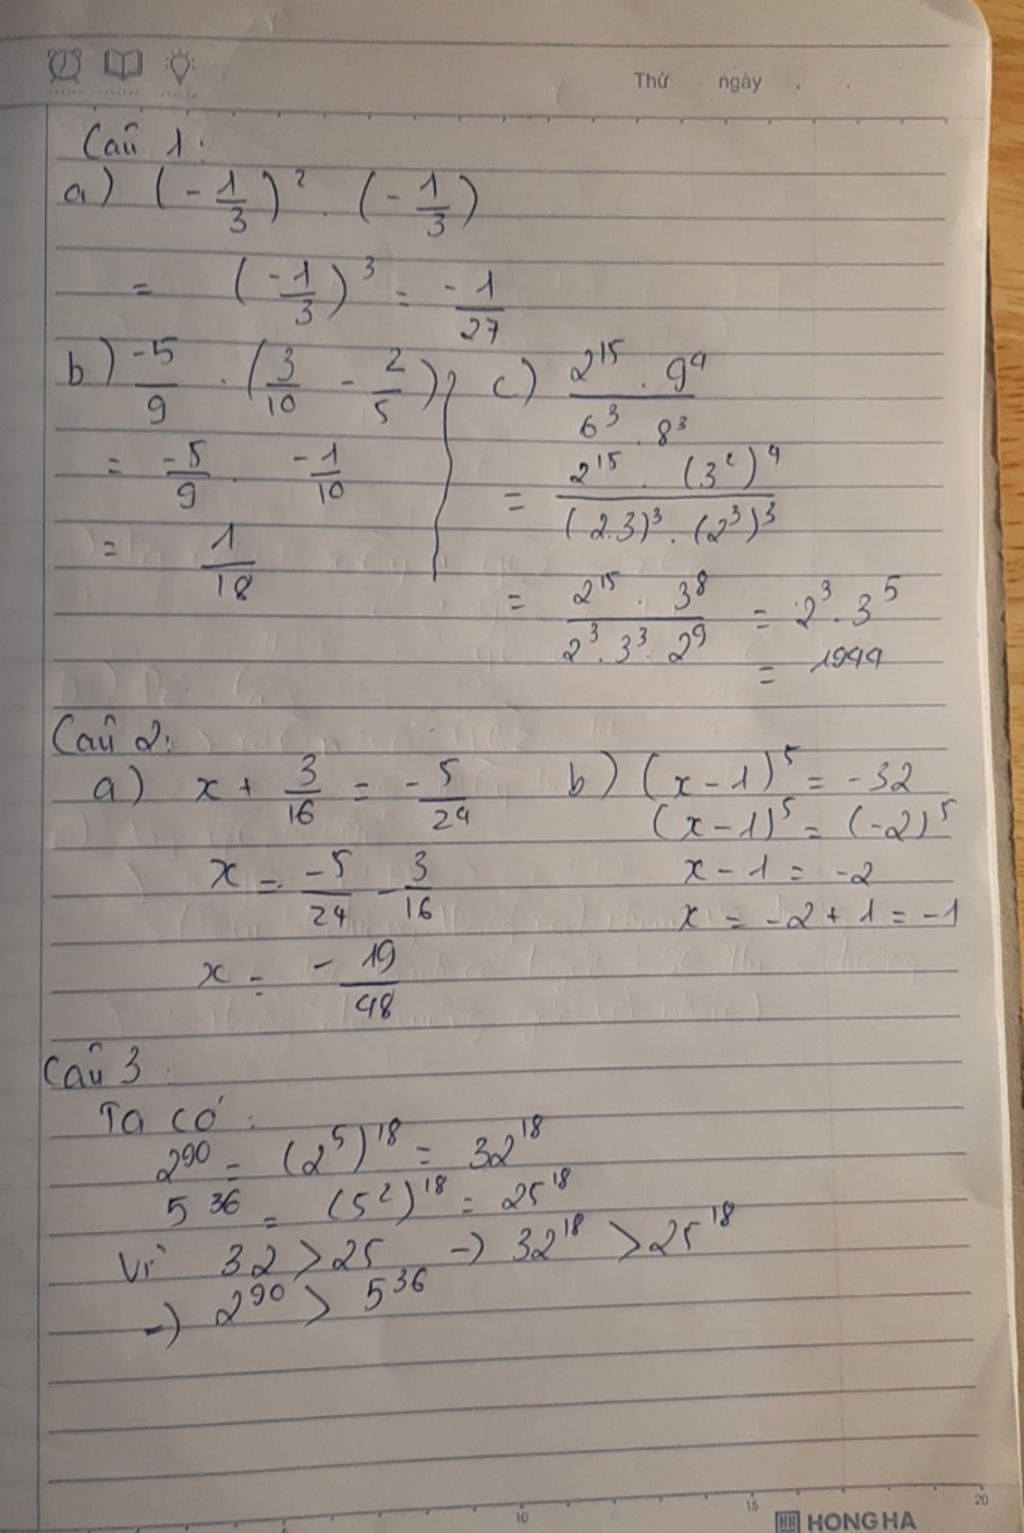 Thứ ngày
Câu 1:
a) (-1/3)² . (-1/3)
= (-1/3)³ = -1/27
b) -5/9 . (3/10 - 2/5)
= -5/9 . -1/10
= 1/18
c) 2¹⁵ . 9⁴ / 6³ . 8³
= 2¹⁵ . (3²)⁴ / (2.3)³ . (2³)³
= 2¹⁵ . 3⁸ / 2³ . 3³ . 2⁹ = 2³ . 3⁵
= 1944
Câu 2:
a) x + 3/16 = -5/24
x = -5/24 - 3/16
x = -19/48
b) (x - 1)⁵ = -32
(x - 1)⁵ = (-2)⁵
x - 1 = -2
x = -2 + 1 = -1
Câu 3
Ta có:
2⁹⁰ = (2⁵)¹⁸ = 32¹⁸
5³⁶ = (5²)¹⁸ = 25¹⁸
Vì 32 > 25 -) 32¹⁸ > 25¹⁸
-) 2⁹⁰ > 5³⁶
10 15 20
HONG HA